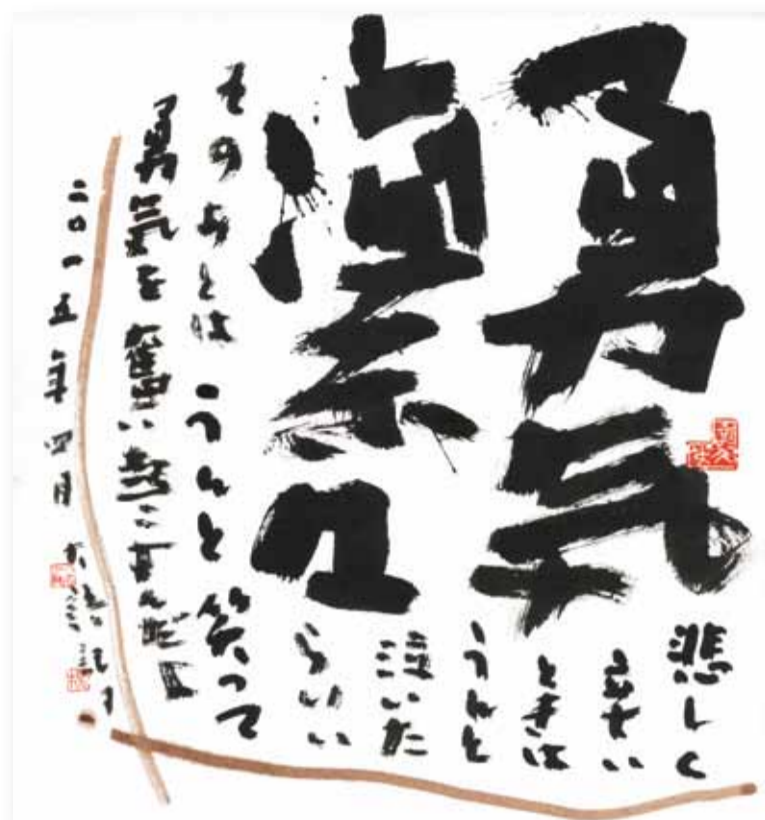 勇気
凛々
悲しく
辛い
ときは
うんと
泣いた
らいい
そのあとは うんと 笑って
勇気を奮い起こすんだよ
二〇一五年四月